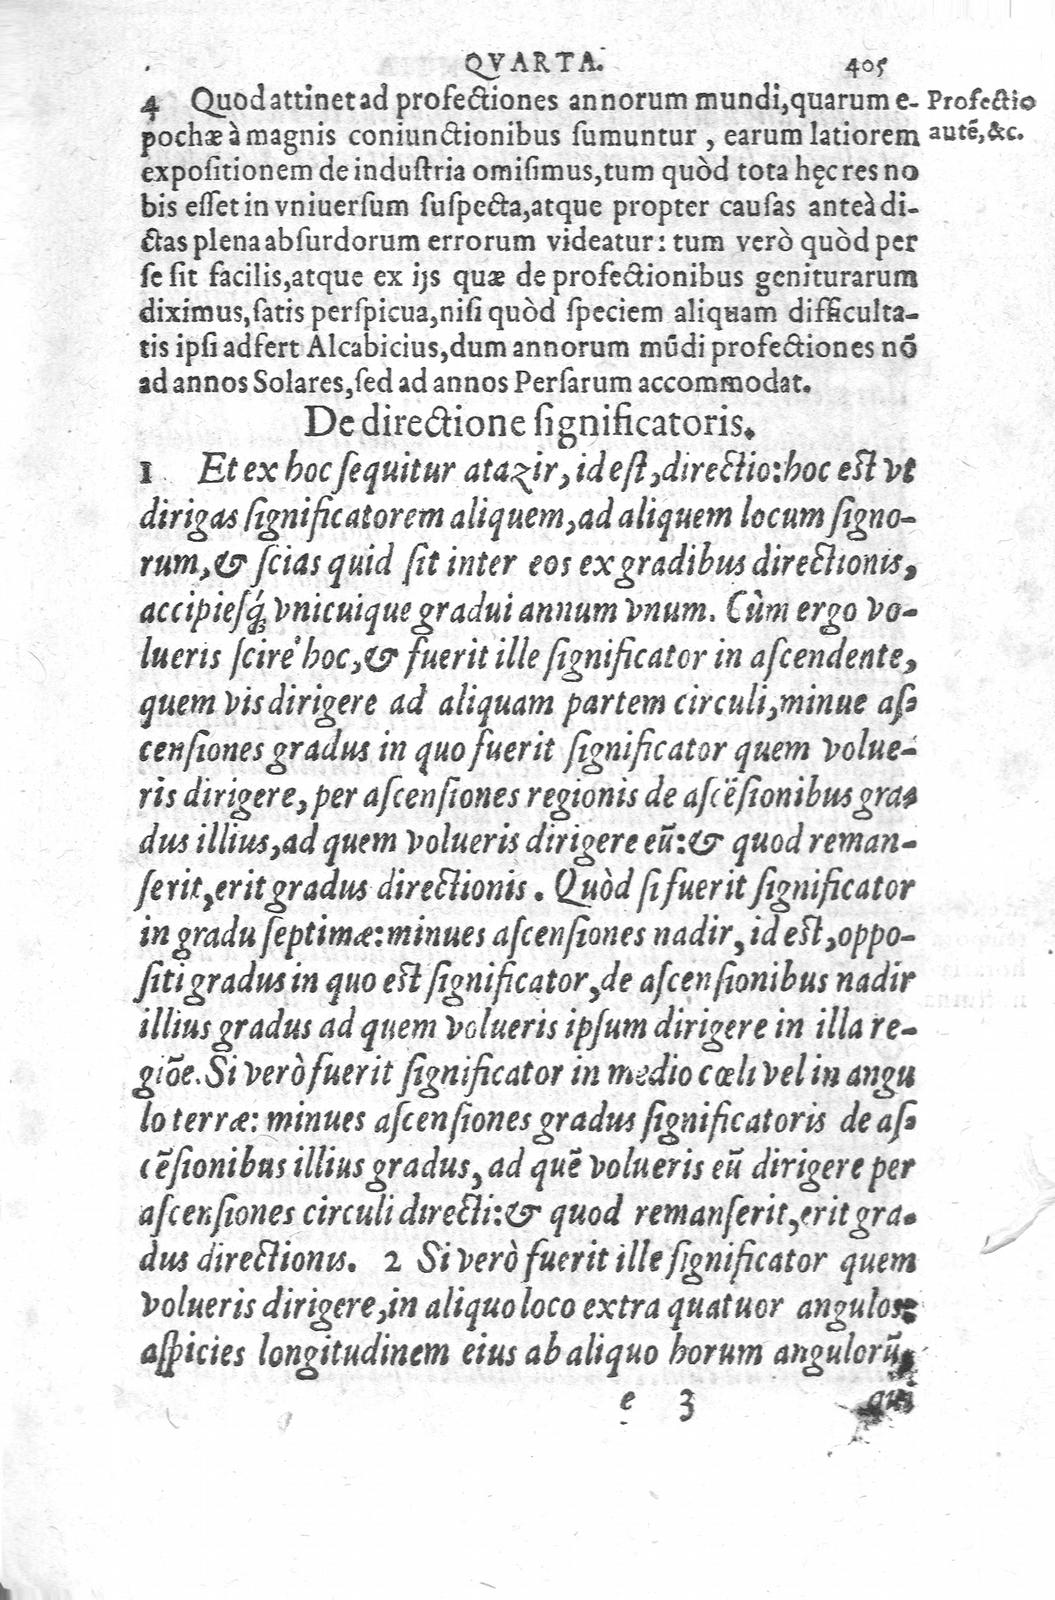 QVARTA. 405
4 Quod attinet ad profectiones annorum mundi, quarum e- Profectio
pochæ à magnis coniunctionibus sumuntur, earum latiorem autē, &c.
expositionem de industria omisimus, tum quòd tota hęc res no
bis esset in vniuersum suspecta, atque propter causas anteà di-
ctas plena absurdorum errorum videatur: tum verò quòd per
se sit facilis, atque ex ijs quæ de profectionibus geniturarum
diximus, satis perspicua, nisi quòd speciem aliquam difficulta-
tis ipsi adfert Alcabicius, dum annorum mūdi profectiones nō
ad annos Solares, sed ad annos Persarum accommodat.
De directione significatoris.
1 Et ex hoc sequitur atazir, id est, directio: hoc est vt
dirigas significatorem aliquem, ad aliquem locum signo-
rum, & scias quid sit inter eos ex gradibus directionis,
accipiesq́; vnicuique gradui annum vnum. Cùm ergo vo-
lueris scire hoc, & fuerit ille significator in ascendente,
quem vis dirigere ad aliquam partem circuli, minue as-
censiones gradus in quo fuerit significator quem volue-
ris dirigere, per ascensiones regionis de ascēsionibus gra-
dus illius, ad quem volueris dirigere eū: & quod reman-
serit, erit gradus directionis. Quòd si fuerit significator
in gradu septimæ: minues ascensiones nadir, id est, oppo-
siti gradus in quo est significator, de ascensionibus nadir
illius gradus ad quem volueris ipsum dirigere in illa re-
giōe. Si verò fuerit significator in medio cœli vel in angu
lo terræ: minues ascensiones gradus significatoris de as-
cēsionibus illius gradus, ad quē volueris eū dirigere per
ascensiones circuli directi: & quod remanserit, erit gra-
dus directionis. 2 Si verò fuerit ille significator quem
volueris dirigere, in aliquo loco extra quatuor angulos:
aspicies longitudinem eius ab aliquo horum angulorū,
e 3 qui